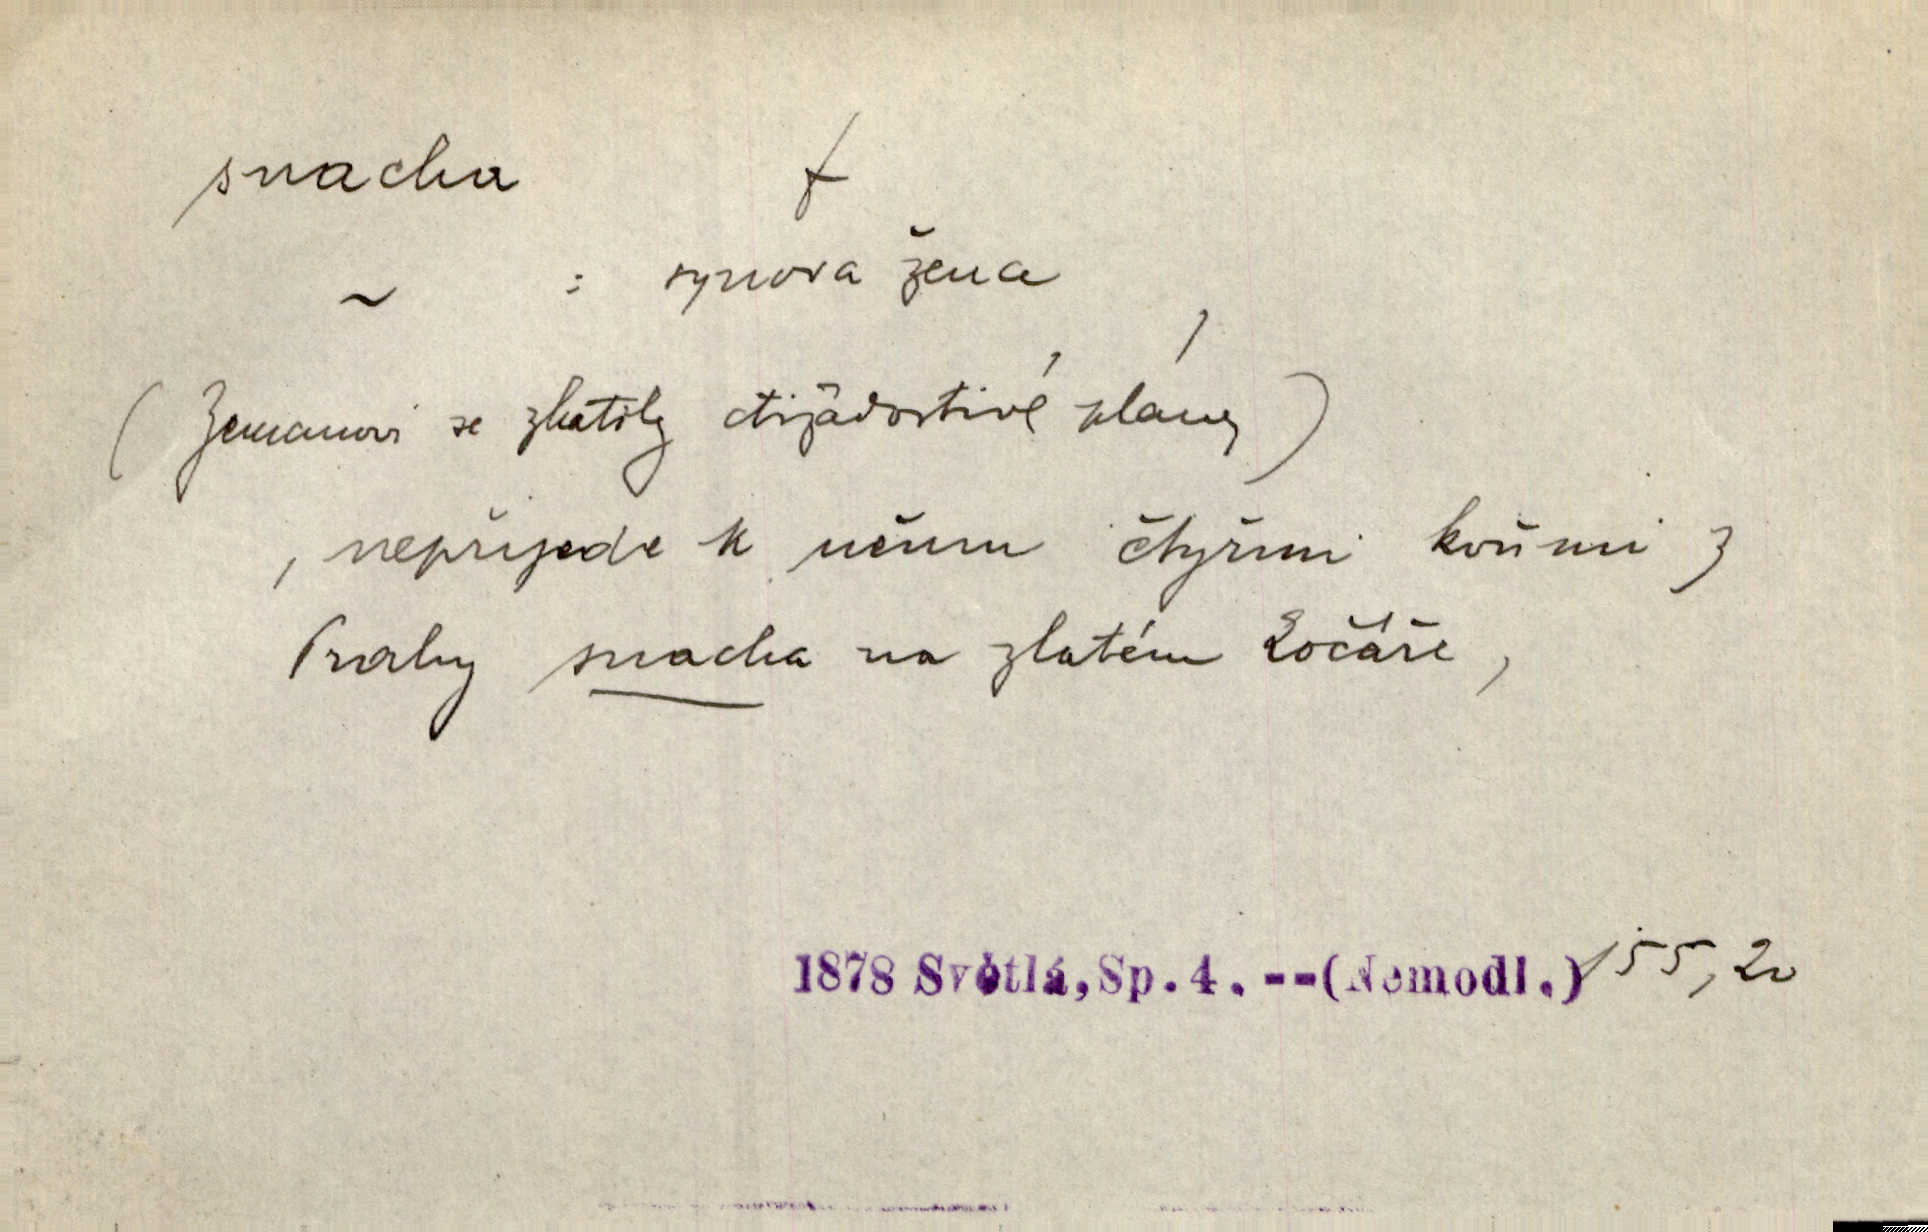 snacha f
~ : synova žena
(Zemanovi se zhatily ctižádostivé plány)
, nepřijede k němu čtyřmi koňmi z
Prahy snacha na zlatém kočáře,
1878 Světlá, Sp. 4. -- (Nemodl.) 155, 20